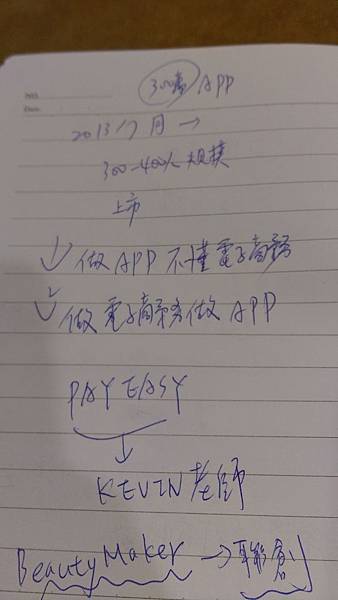 300萬 APP
2013/7月 →
300-400人規模
上市
做APP不懂電子商務
做電子商務做APP
PAYEASY
↓
KEVIN老師
BeautyMaker → 聯創